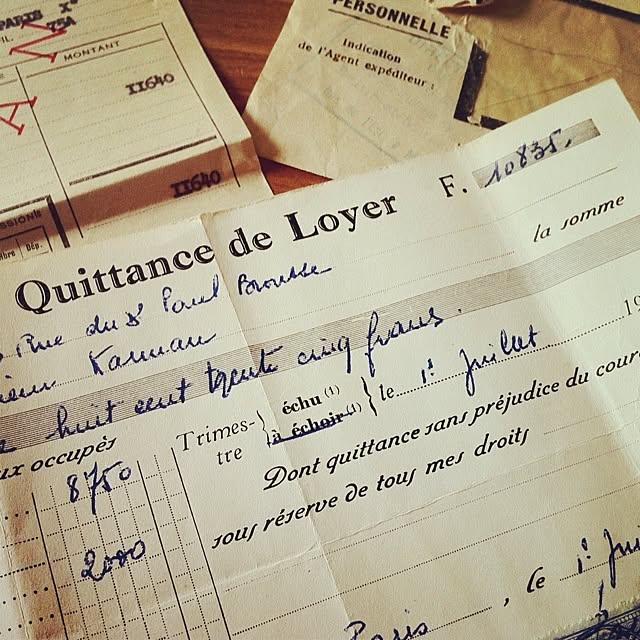 PARIS X°
75A
MONTANT
11640
11640
PERSONNELLE
Indication
de l'Agent expéditeur :
Quittance de Loyer F. 10835.
Rue du Dr Paul Brousse la somme
huit cent trente cinq francs.
Trimestre échu (1) à échoir (1) le 1er Juillet 19
ux occupés
8750
Dont quittance sans préjudice du cour
2000
sous réserve de tous mes droits
Paris, le 1er Jui